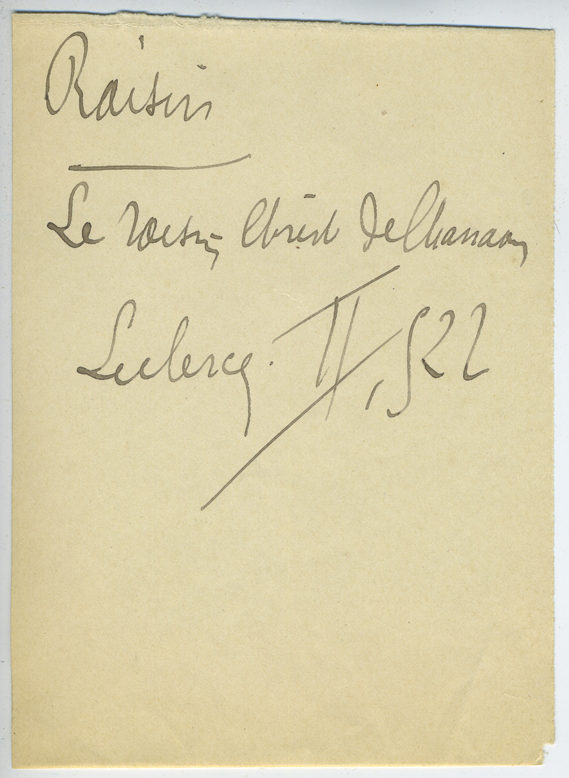 Raisin
Le raisin, Christ de Chanaan,
Leclercq. II, 522